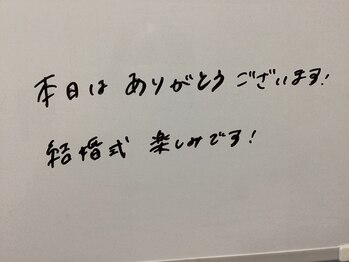 本日は ありがとう ございます!
結婚式 楽しみです!